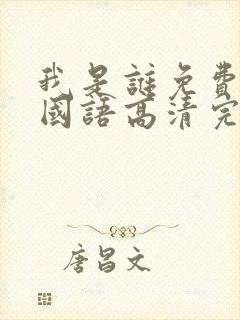 我是誰免費
國語高清完
唐昌文